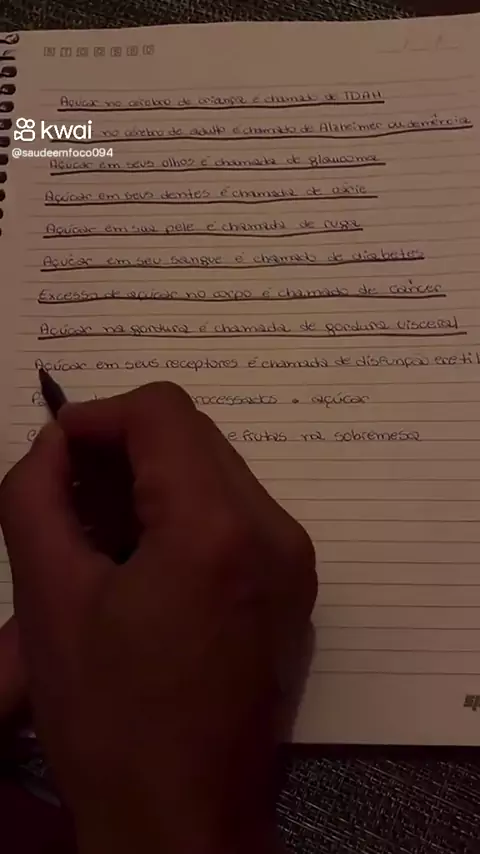 kwai
@saudeemfoco094
Açúcar no cérebro de criança é chamado de TDAH
no cérebro de adulto é chamado de Alzheimer ou demência
Açúcar em seus olhos é chamada de glaucoma
Açúcar em seus dentes é chamada de cárie
Açúcar em sua pele é chamada de ruga
Açúcar em seu sangue é chamado de diabetes
Excesso de açúcar no corpo é chamado de câncer
Açúcar na gordura é chamada de gordura visceral
Açúcar em seus receptores é chamada de disfunção eretil
açúcar
e frutas na sobremesa